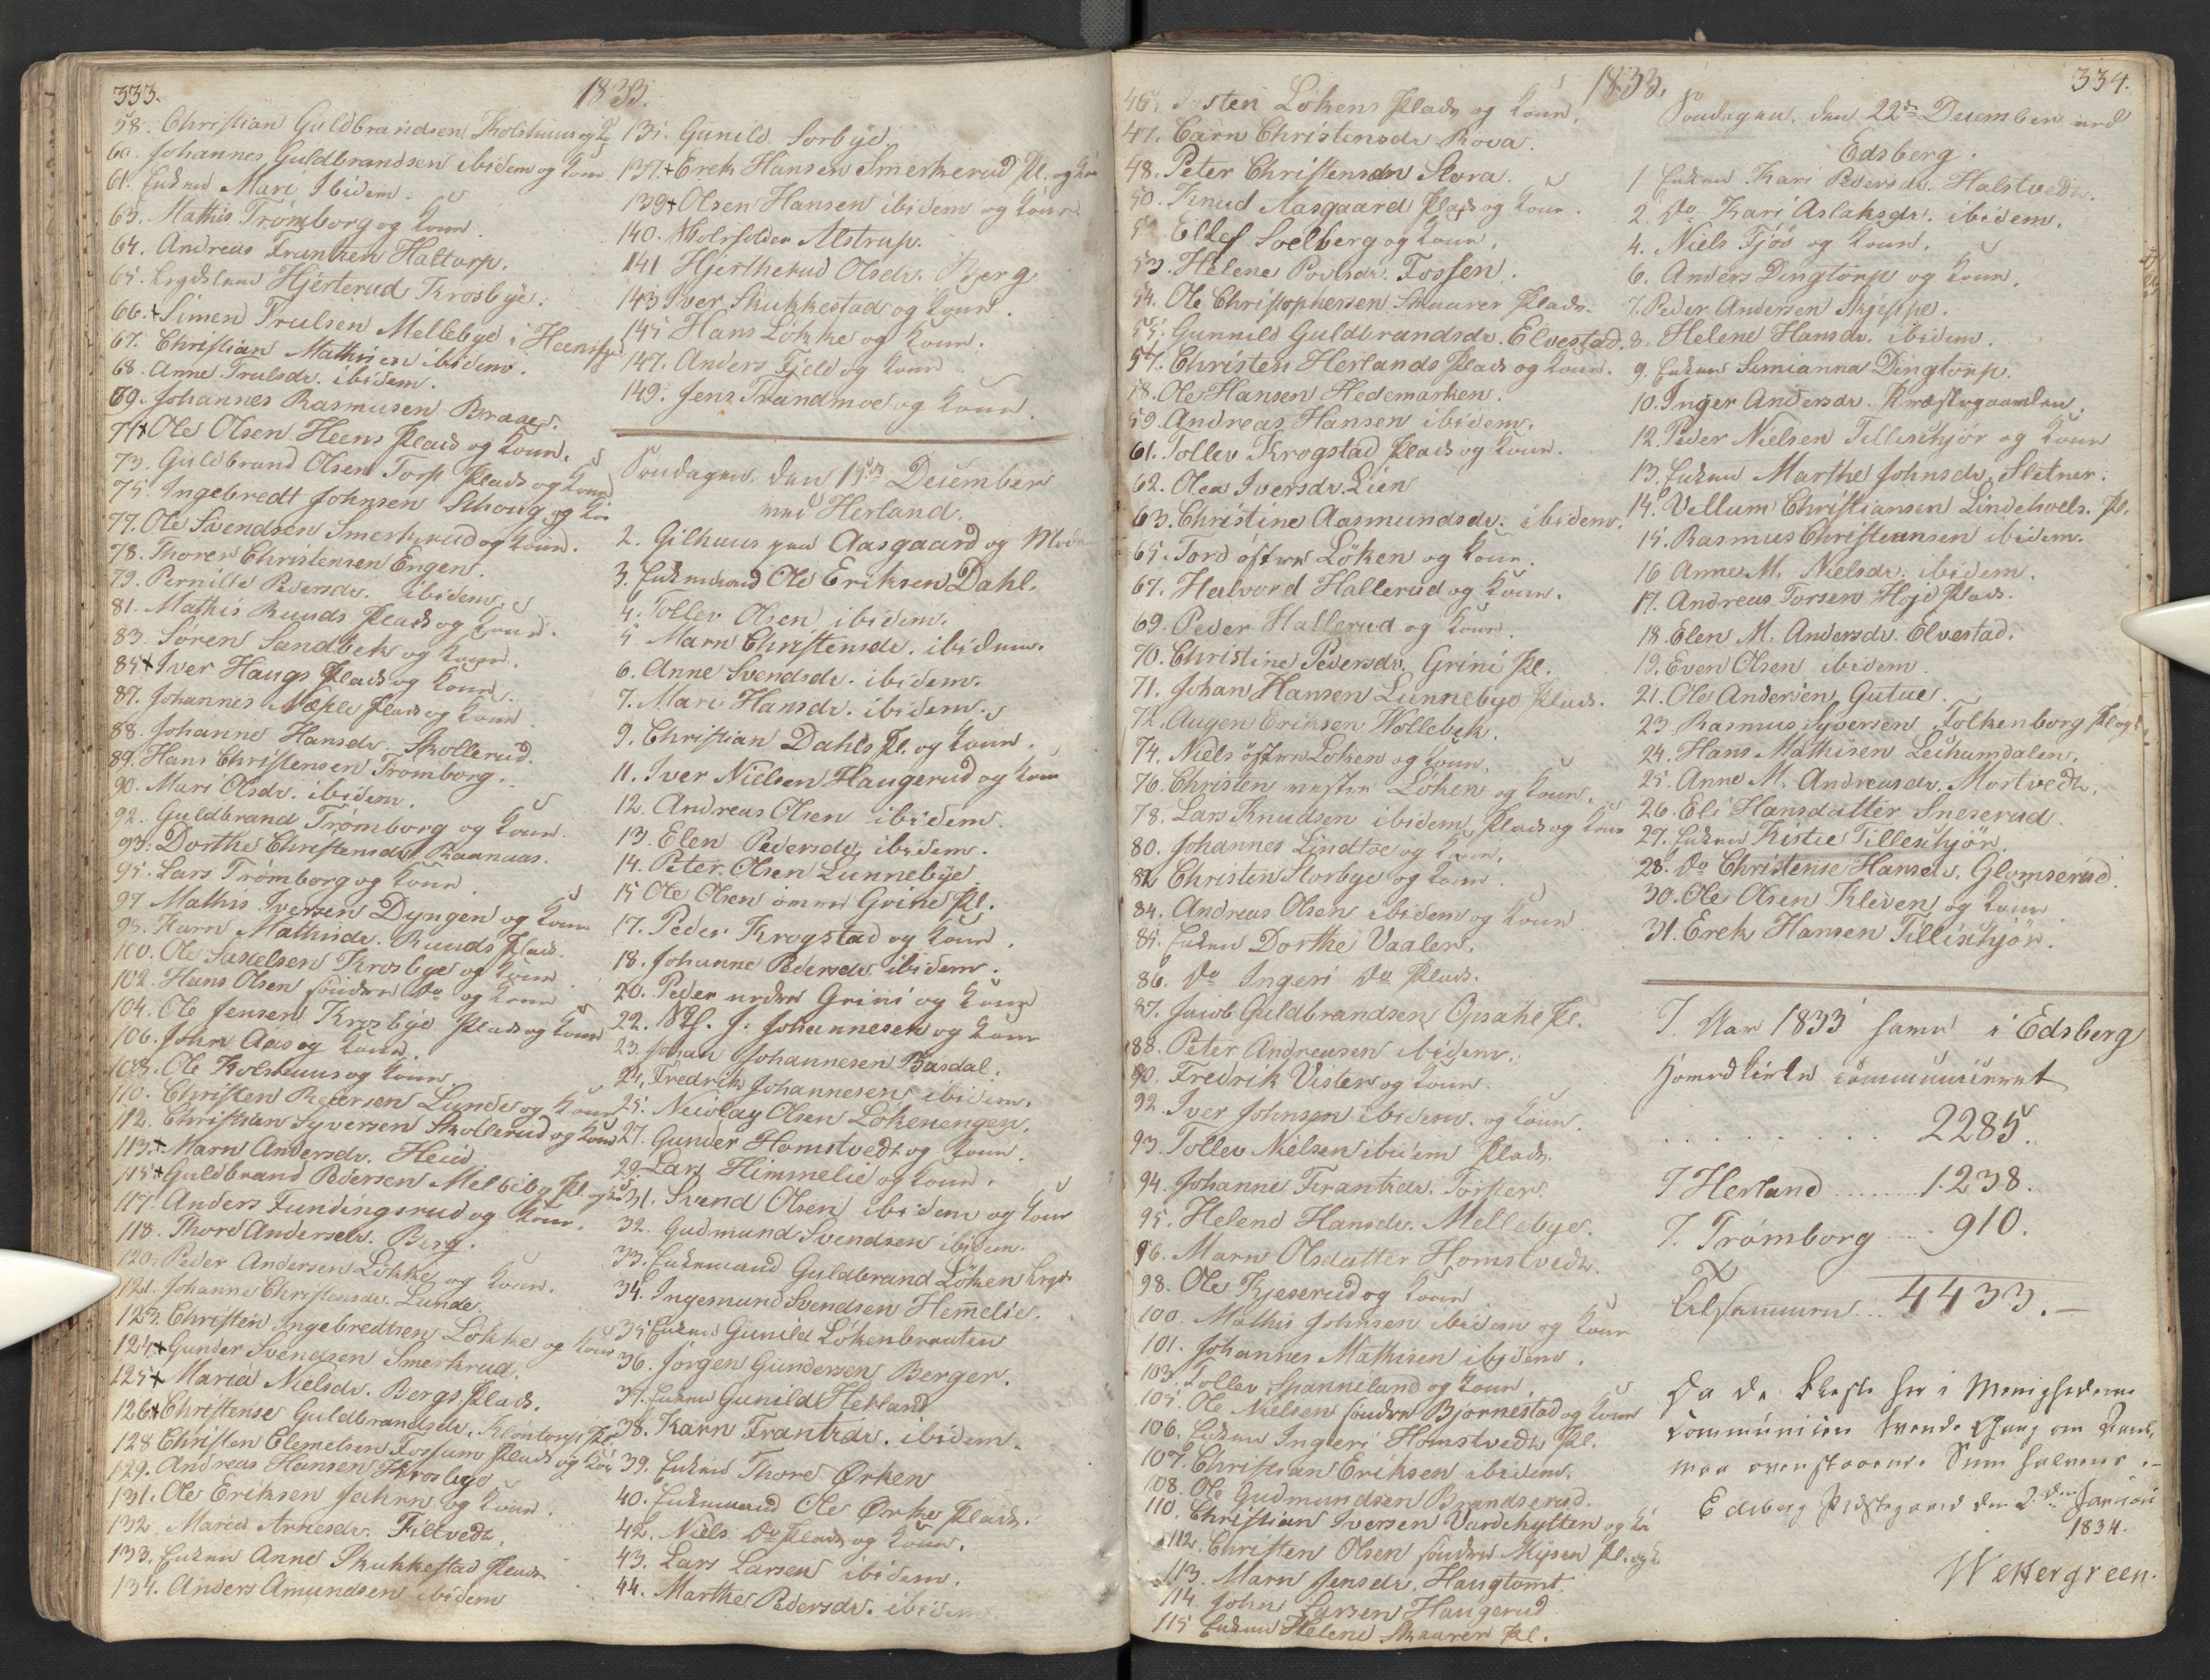 333.
1833.
58. Christian Guldbrandsen Kolshuus og K
60. Johannes Guldbrandsen ibidem og Kone
61. Enken Mari Ibidem.
63. Mathis Trømborg og Kone.
64. Andreas Frantzen Haltorp.
65. Hjerterud Krosbye.
66. + Simen Trulsen Mellebye i Heens
67. Christian Mathisen ibidem.
68. Anne Trulsdr. ibidem.
69. Johannes Rasmusen Braaes.
71 + Ole Olsen Heens Plads og Kone.
73. Guldbrand Olsen Torp Plads og Kone
75. Ingebredt Johnsen Schoug og Ko
77. Ole Svendsen Smerkerud og Kone.
78. Thorer Christensen Engen.
79. Pernille Pedersdr. ibidem.
81. Mathis Ruuds Plads og Kone.
83. Søren Sandbek og Kone.
85 + Iver Haugs Plads og Kone.
87. Johannes Næple Plads og Kone
88. Johanne Hansdr. Skollerud.
89. Hans Christensen Tromborg.
90. Mari Olsdr. ibidem.
92. Guldbrand Trømborg og Kone.
93. Dorthe Christensdr. Raanaas.
95. Lars Trømborg og Kone.
97 Mathis Iversen Dyngen og Kone
98. Karn Mathisdr. Ruuds Plads.
100. Ole Krosbye og Kone.
102. Hans Olsen søndre Do og Kone
104. Ole Jensen Krosbye Plads og Kone
106. John Aas og Kone.
108. Ole Kolshuus og Kone
110. Christen Pedersen Lunde og Kone
112. Christian Syversen Skollerud og Kone
113. + Marn Andersdr. Heid
115 + Guldbrand Pedersen Melbeby Pl. og Ko
117. Anders Fundingsrud og Kone.
118. Thore Andersdr. Berg.
120. Peder Andersen Løkke og Kone.
121. Johanne Christensdr. Lunde.
123. Christen Ingebredtsen Løkke og Kone
124 + Gunder Svendsen Smerkrud.
125 + Maria Nielsdr. Bergs Plads.
126 + Christense Guldbrandsdr. Klontorp Pl.
128 Christen Clemetsen Fossum Plads og Ko
129. Andreas Hansen Krosbye
131. Ole Eriksen Jahren og Kone.
132. Maria Arnesdr. Filtvedt.
133. Enken Anne Skukkestad Plads
134. Anders Amundsen ibidem
135. Gunild Sorbye
137. + Erek Hansen Smerkerud Pl. og Ko
139 + Olsen Hansen ibidem og Kone.
140. Alstrup.
141 Hjerthekud Olsdr. Berg
143 Iver Skukkestad og Kone.
145 Hans Løkke og Kone.
147. Anders Fjeld og Kone
149. Jens Trandmoe og Kone.
Søndagen den 15de December
ved Herland.
2. Gilhuus paa Aasgaard og
3. Enkemand Ole Eriksen Dahl.
4. Tollev Olsen ibidem.
5. Marn Christensdr. ibidem.
6. Anne Svendsdr. ibidem.
7. Mari Hansdr. ibidem.
9. Christian Dahls Pl. og Kone.
11. Iver Nielsen Haugerud og Kone
12. Andreas Olsen ibidem.
13. Elen Pedersdr. ibidem.
14. Peter Olsen Lunnebye
15 Ole Olsen Grine Pl.
17. Peder Krogstad og Kone.
18. Johanne Pedersdr. ibidem.
20. Peder nedre Grini og Kone
22. J. Johannesen og Kone
23. Johan Johannesen Basdal.
24. Fredrik Johannesen ibidem.
25. Nicolay Olsen Løkenengen.
27. Gunder Homstvedt og Kone.
29. Lars Himmelie og Kone.
31. Svend Olsen ibidem og Kone
32. Gudmund Svendsen ibidem.
33. Enkemand Guldbrand Løken
34. Ingemund Svendsen Hemelie.
35 Enken Gunild Løkenbraaten
36. Jørgen Gundersen Berger.
37. Enken Gunild Herland
38. Karn Frantzdr. ibidem.
39. Enken Thore Ørken
40. Enkemand Ole Ørke Plads.
42. Niels Do Plads og Kone.
43. Lars Larsen ibidem.
44. Marthe Pedersdr. ibidem.
1833.
334.
46. Løkens Plads og Kone.
47. Carn Christensdr Rova.
48. Peter Christensen Skora.
50. Knud Aasgaard Plads og Kone.
52 Ellef Soelberg og Kone.
53. Helene Povlsdr. Fossen.
54. Ole Christophersen Skaarer Plads.
55. Gunnild Guldbrandsdr. Elvestad.
57. Christen Herlands Plads og Kone.
58. Ole Hansen Hedemarken.
59 Andreas Hansen ibidem.
61. Tollev Krogstad Plads og Kone.
62. Olea Iversdr. Lien
63. Christine Aasmundsdr. ibidem.
65. Tord østre Løken og Kone.
67. Halvord Hallerud og Kone.
69. Peder Hallerud og Kone.
70. Christine Pedersdr. Grini Pl.
71. Johan Hansen Lunnebye Plads.
72. Augen Eriksen Wollebek.
74. Niels østre Løken og Kone.
76. Christen vestre Løken og Kone.
78. Lars Knudsen ibidem Plads og Kone
80. Johannes Lindtoe og Kone.
82 Christen Storbye og Kone.
84. Andreas Olsen ibidem og Kone
85. Enken Dorthe Vaaler.
86. Do Ingeri Do Plads.
87. Jacob Guldbrandsen Opsahl Pl.
88. Peter Andreasen ibidem.
90. Fredrik Vister og Kone.
92. Iver Johnsen ibidem. og Kone.
93. Tollev Nielsen ibidem Plads.
94. Johanne Frantzdr. Torper.
95. Helene Hansdr. Mellebye.
96. Marn Olsdatter Homstvedt.
98. Ole Kjeserud og Kone
100. Mathis Johnsen ibidem og Kone
101. Johannes Mathisen ibidem.
103. Tollev Spanneland og Kone.
105. Ole Nielsen søndre Bjørnestad og Kone
106. Enken Ingeri Homstvedt Pl.
107. Christian Eriksen ibidem.
108. Ole Gudmundsen Brandserud.
110. Christian Iversen Vardehytten og Ko
112. Christen Olsen søndre Mysen Pl. og K.
113. Marn Jensdr. Haugtomt
114. John Larsen Haugerud
115 Enken Helene Skaaren Pl.
Søndagen, den 22de December ved
Edsberg.
1 Enken Kari Pedersdr. Halstvedt.
2. Do Kari Aslaksdr. ibidem.
4. Niels Fjøs og Kone.
6. Anders Dingtorp og Kone.
7. Peder Andersen Skjeppe.
8. Helene Hansdr. ibidem.
9. Enken Simianna Dingtorp.
10. Inger Andersdr. Præstegaarden.
12. Peder Nielsen Tillischjør og Kone
13. Enken Marthe Johnsdr. Sletner.
14. Vellum Christiansen Lindehoels. Pl.
15. Rasmus Christensen ibidem.
16 Anne M. Nielsdr. ibidem.
17. Andreas Torsen Høje Plads.
18. Elen M. Andersdr. Elvestad.
19. Even Olsen ibidem.
21. Ole Andersen Gutue.
23 Rasmus Syversen Folkenborg Pl og K
24. Hans Mathisen Lechumdalen.
25. Anne M. Andreasdr. Mortvedt.
26. Eli Hansdatter Sneserud.
27. Enken Kistie Tillischjør.
28. Do Christense Hansdr. Glomserud.
30. Ole Olsen Kleven og Kone.
31. Erek Hansen Tillischjør.
I Aar 1833 have i Edsberg
Hovedkirke communiceret
. . . . . . . . 2285.
I Herland ........ 1238.
I Trømborg .... 910.
Tilsammen .. 4433. –
Da de fleste her i Menighederne
communicere tvende Gang om Aaret,
maa ovenstaaende Sum halveres. –
Edsberg Præstegaard den 2den Januari
1834.
Wettergreen.